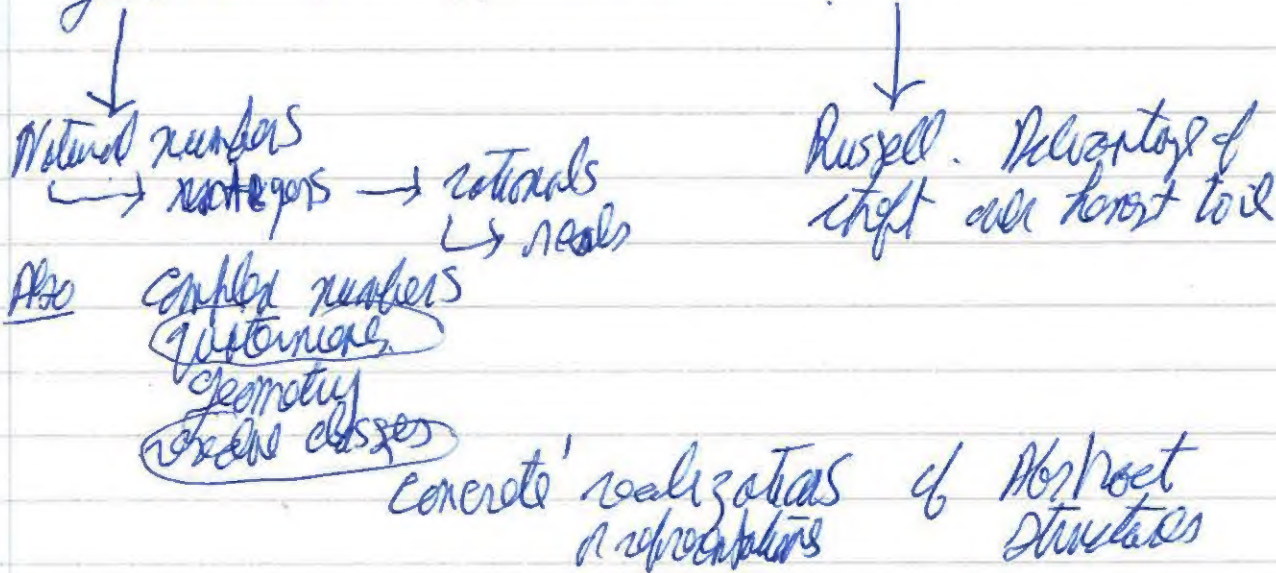 Natural numbers
→ integers → rationals
→ reals
Russell. Advantage of
theft over honest toil
Also complex numbers
quaternions
geometry
residue classes
'concrete' realizations of Abstract
or representations structures